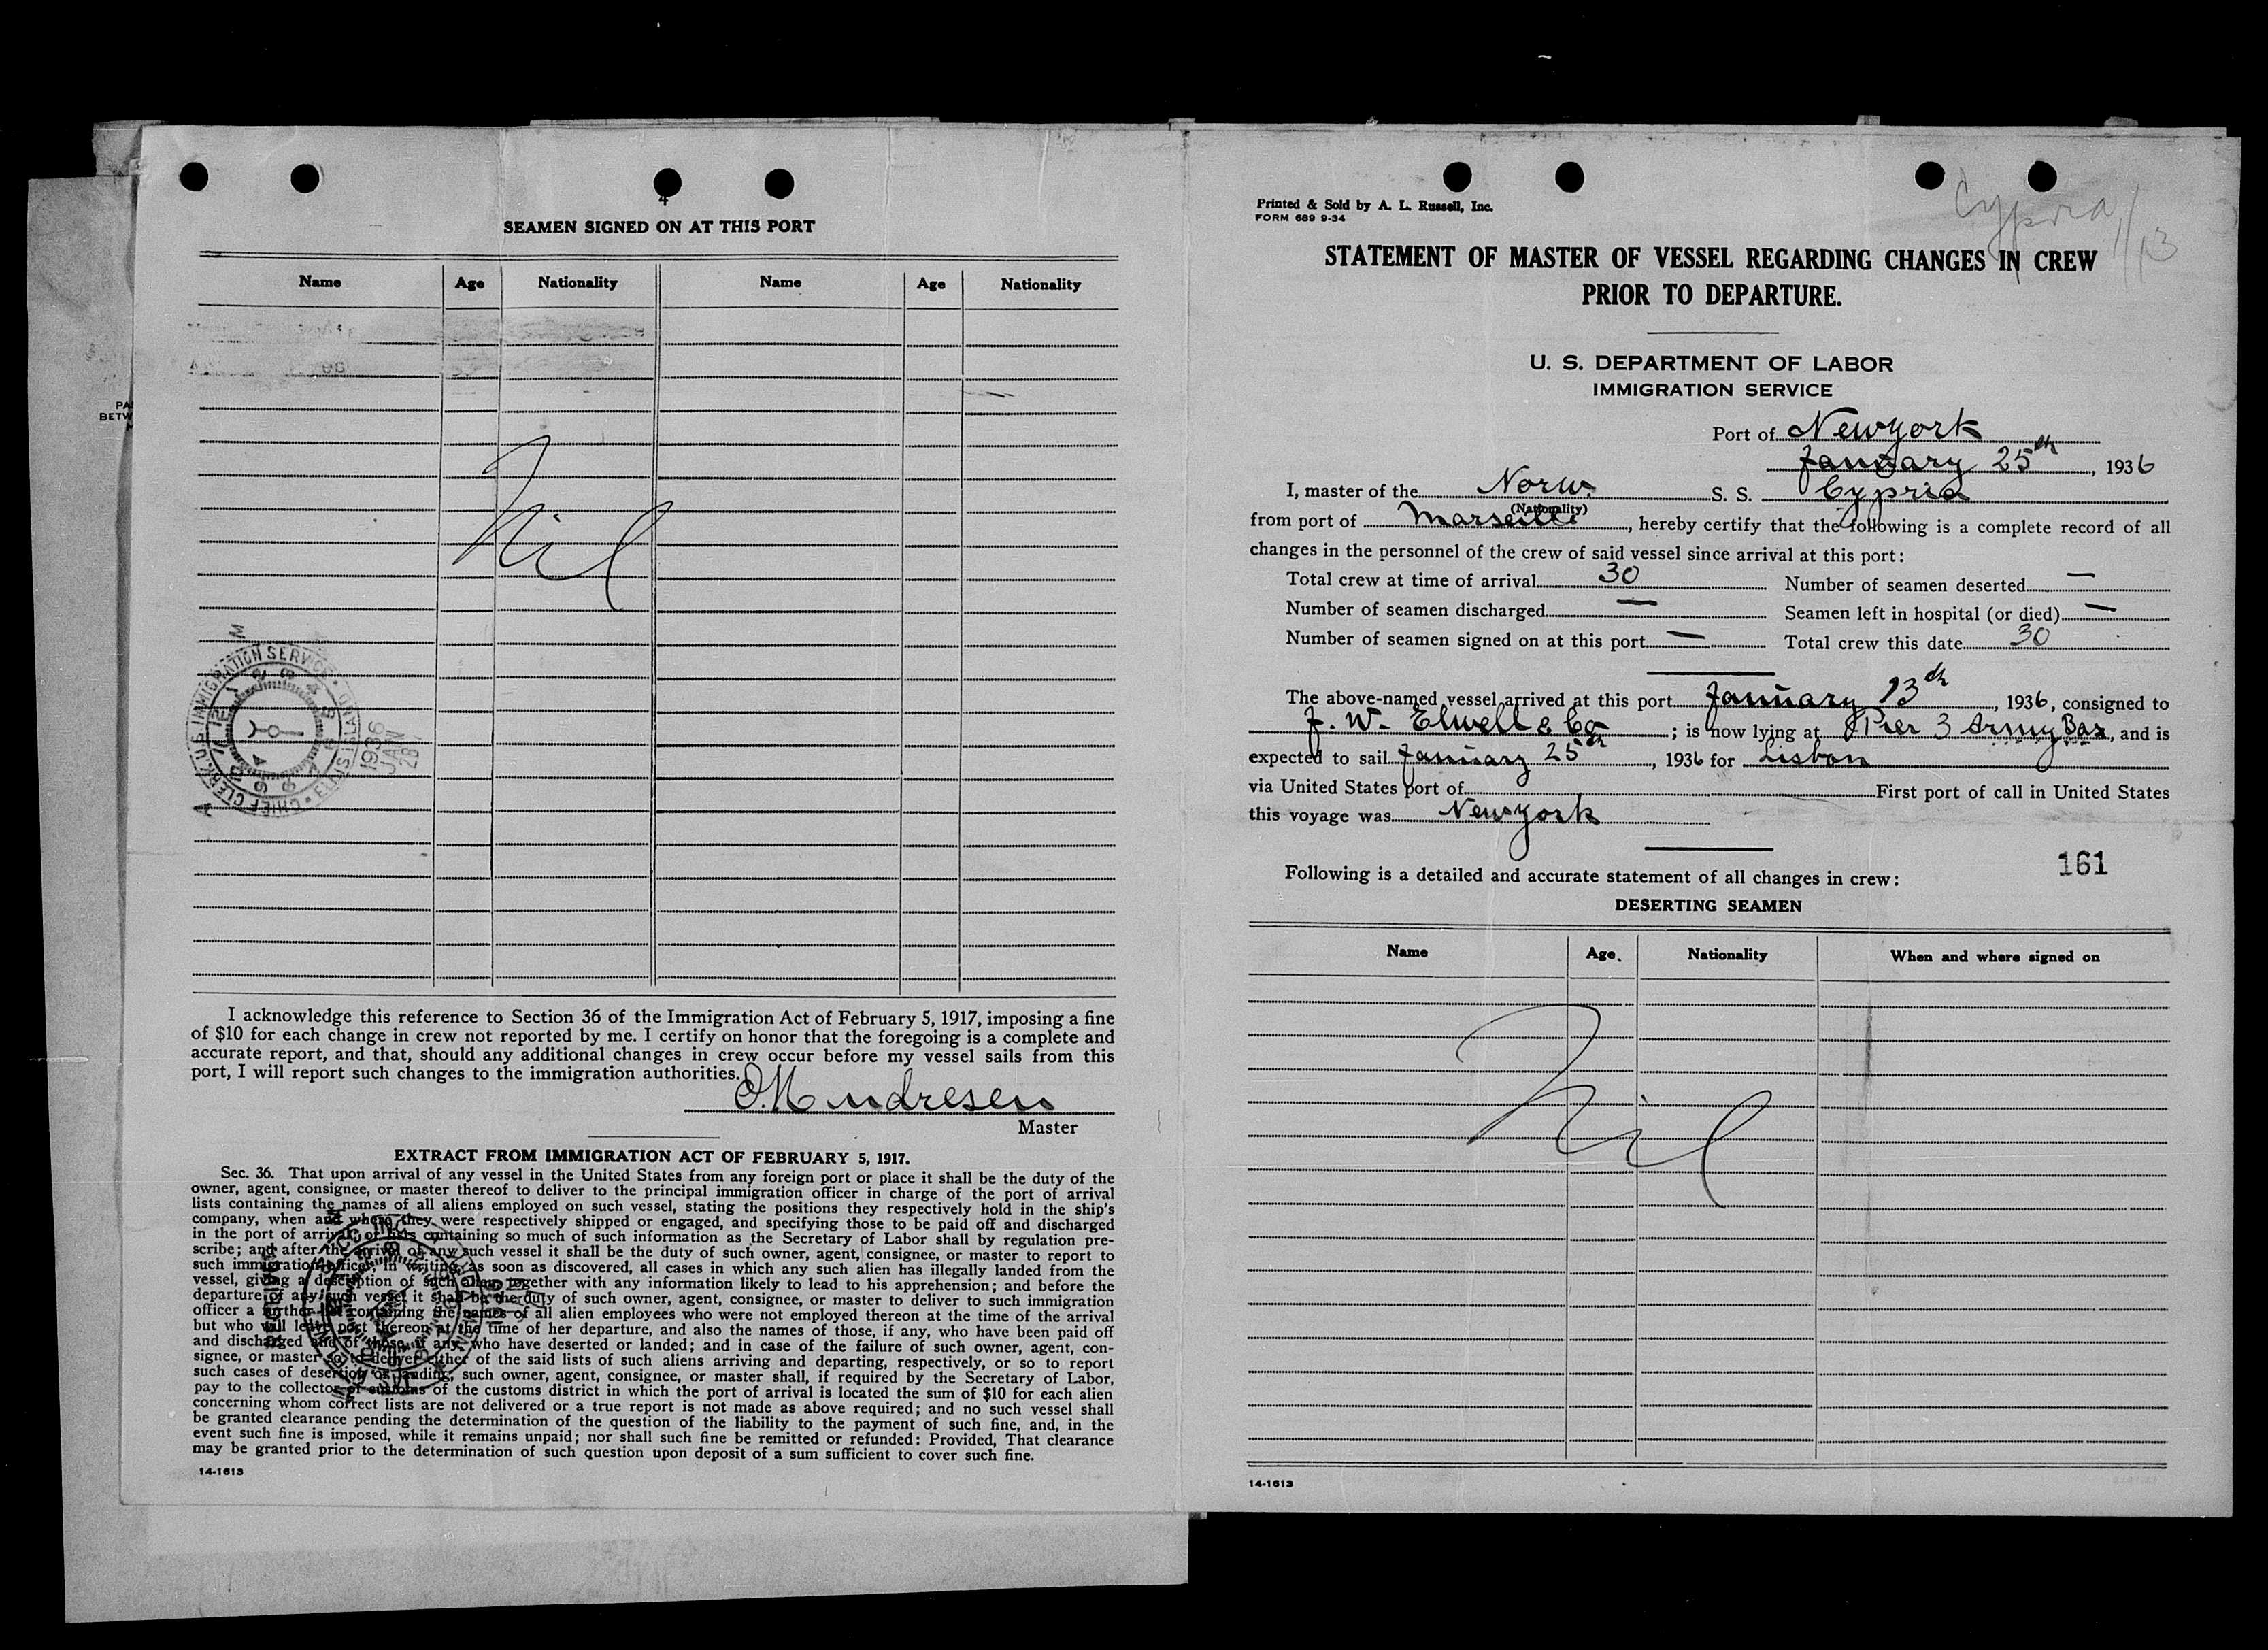 4
SEAMEN SIGNED ON AT THIS PORT
Name Age Nationality Name Age Nationality
Nil
CHIEF CLERK, U.S. IMMIGRATION SERVICE ELLIS ISLAND
1936 JAN 28
I acknowledge this reference to Section 36 of the Immigration Act of February 5, 1917, imposing a fine
of $10 for each change in crew not reported by me. I certify on honor that the foregoing is a complete and
accurate report, and that, should any additional changes in crew occur before my vessel sails from this
port, I will report such changes to the immigration authorities.
Andresen
Master
EXTRACT FROM IMMIGRATION ACT OF FEBRUARY 5, 1917.
Sec. 36. That upon arrival of any vessel in the United States from any foreign port or place it shall be the duty of the
owner, agent, consignee, or master thereof to deliver to the principal immigration officer in charge of the port of arrival
lists containing the names of all aliens employed on such vessel, stating the positions they respectively hold in the ship's
company, when and where they were respectively shipped or engaged, and specifying those to be paid off and discharged
in the port of arrival; or lists containing so much of such information as the Secretary of Labor shall by regulation pre-
scribe; and after the arrival of any such vessel it shall be the duty of such owner, agent, consignee, or master to report to
such immigration officer, in writing, as soon as discovered, all cases in which any such alien has illegally landed from the
vessel, giving a description of such alien, together with any information likely to lead to his apprehension; and before the
departure of any such vessel it shall be the duty of such owner, agent, consignee, or master to deliver to such immigration
officer a further list containing the names of all alien employees who were not employed thereon at the time of the arrival
but who will leave port thereon at the time of her departure, and also the names of those, if any, who have been paid off
and discharged and of those, if any, who have deserted or landed; and in case of the failure of such owner, agent, con-
signee, or master so to deliver either of the said lists of such aliens arriving and departing, respectively, or so to report
such cases of desertion or landing, such owner, agent, consignee, or master shall, if required by the Secretary of Labor,
pay to the collector of customs of the customs district in which the port of arrival is located the sum of $10 for each alien
concerning whom correct lists are not delivered or a true report is not made as above required; and no such vessel shall
be granted clearance pending the determination of the question of the liability to the payment of such fine, and, in the
event such fine is imposed, while it remains unpaid; nor shall such fine be remitted or refunded: Provided, That clearance
may be granted prior to the determination of such question upon deposit of a sum sufficient to cover such fine.
14-1613
Printed & Sold by A. L. Russell, Inc.
FORM 689 9-34
Cypria 1/13
STATEMENT OF MASTER OF VESSEL REGARDING CHANGES IN CREW
PRIOR TO DEPARTURE.
U. S. DEPARTMENT OF LABOR
IMMIGRATION SERVICE
Port of Newyork
January 25th, 1936
I, master of the Norw. S. S. Cypria
(Nationality)
from port of Marseille, hereby certify that the following is a complete record of all
changes in the personnel of the crew of said vessel since arrival at this port:
Total crew at time of arrival 30 Number of seamen deserted —
Number of seamen discharged — Seamen left in hospital (or died) —
Number of seamen signed on at this port — Total crew this date 30
The above-named vessel arrived at this port January 13th, 1936, consigned to
J. W. Elwell & Co; is now lying at Pier 3 Army Bas, and is
expected to sail January 25th, 1936 for Lisbon
via United States port of First port of call in United States
this voyage was Newyork
161
Following is a detailed and accurate statement of all changes in crew:
DESERTING SEAMEN
Name Age. Nationality When and where signed on
Nil
14-1613